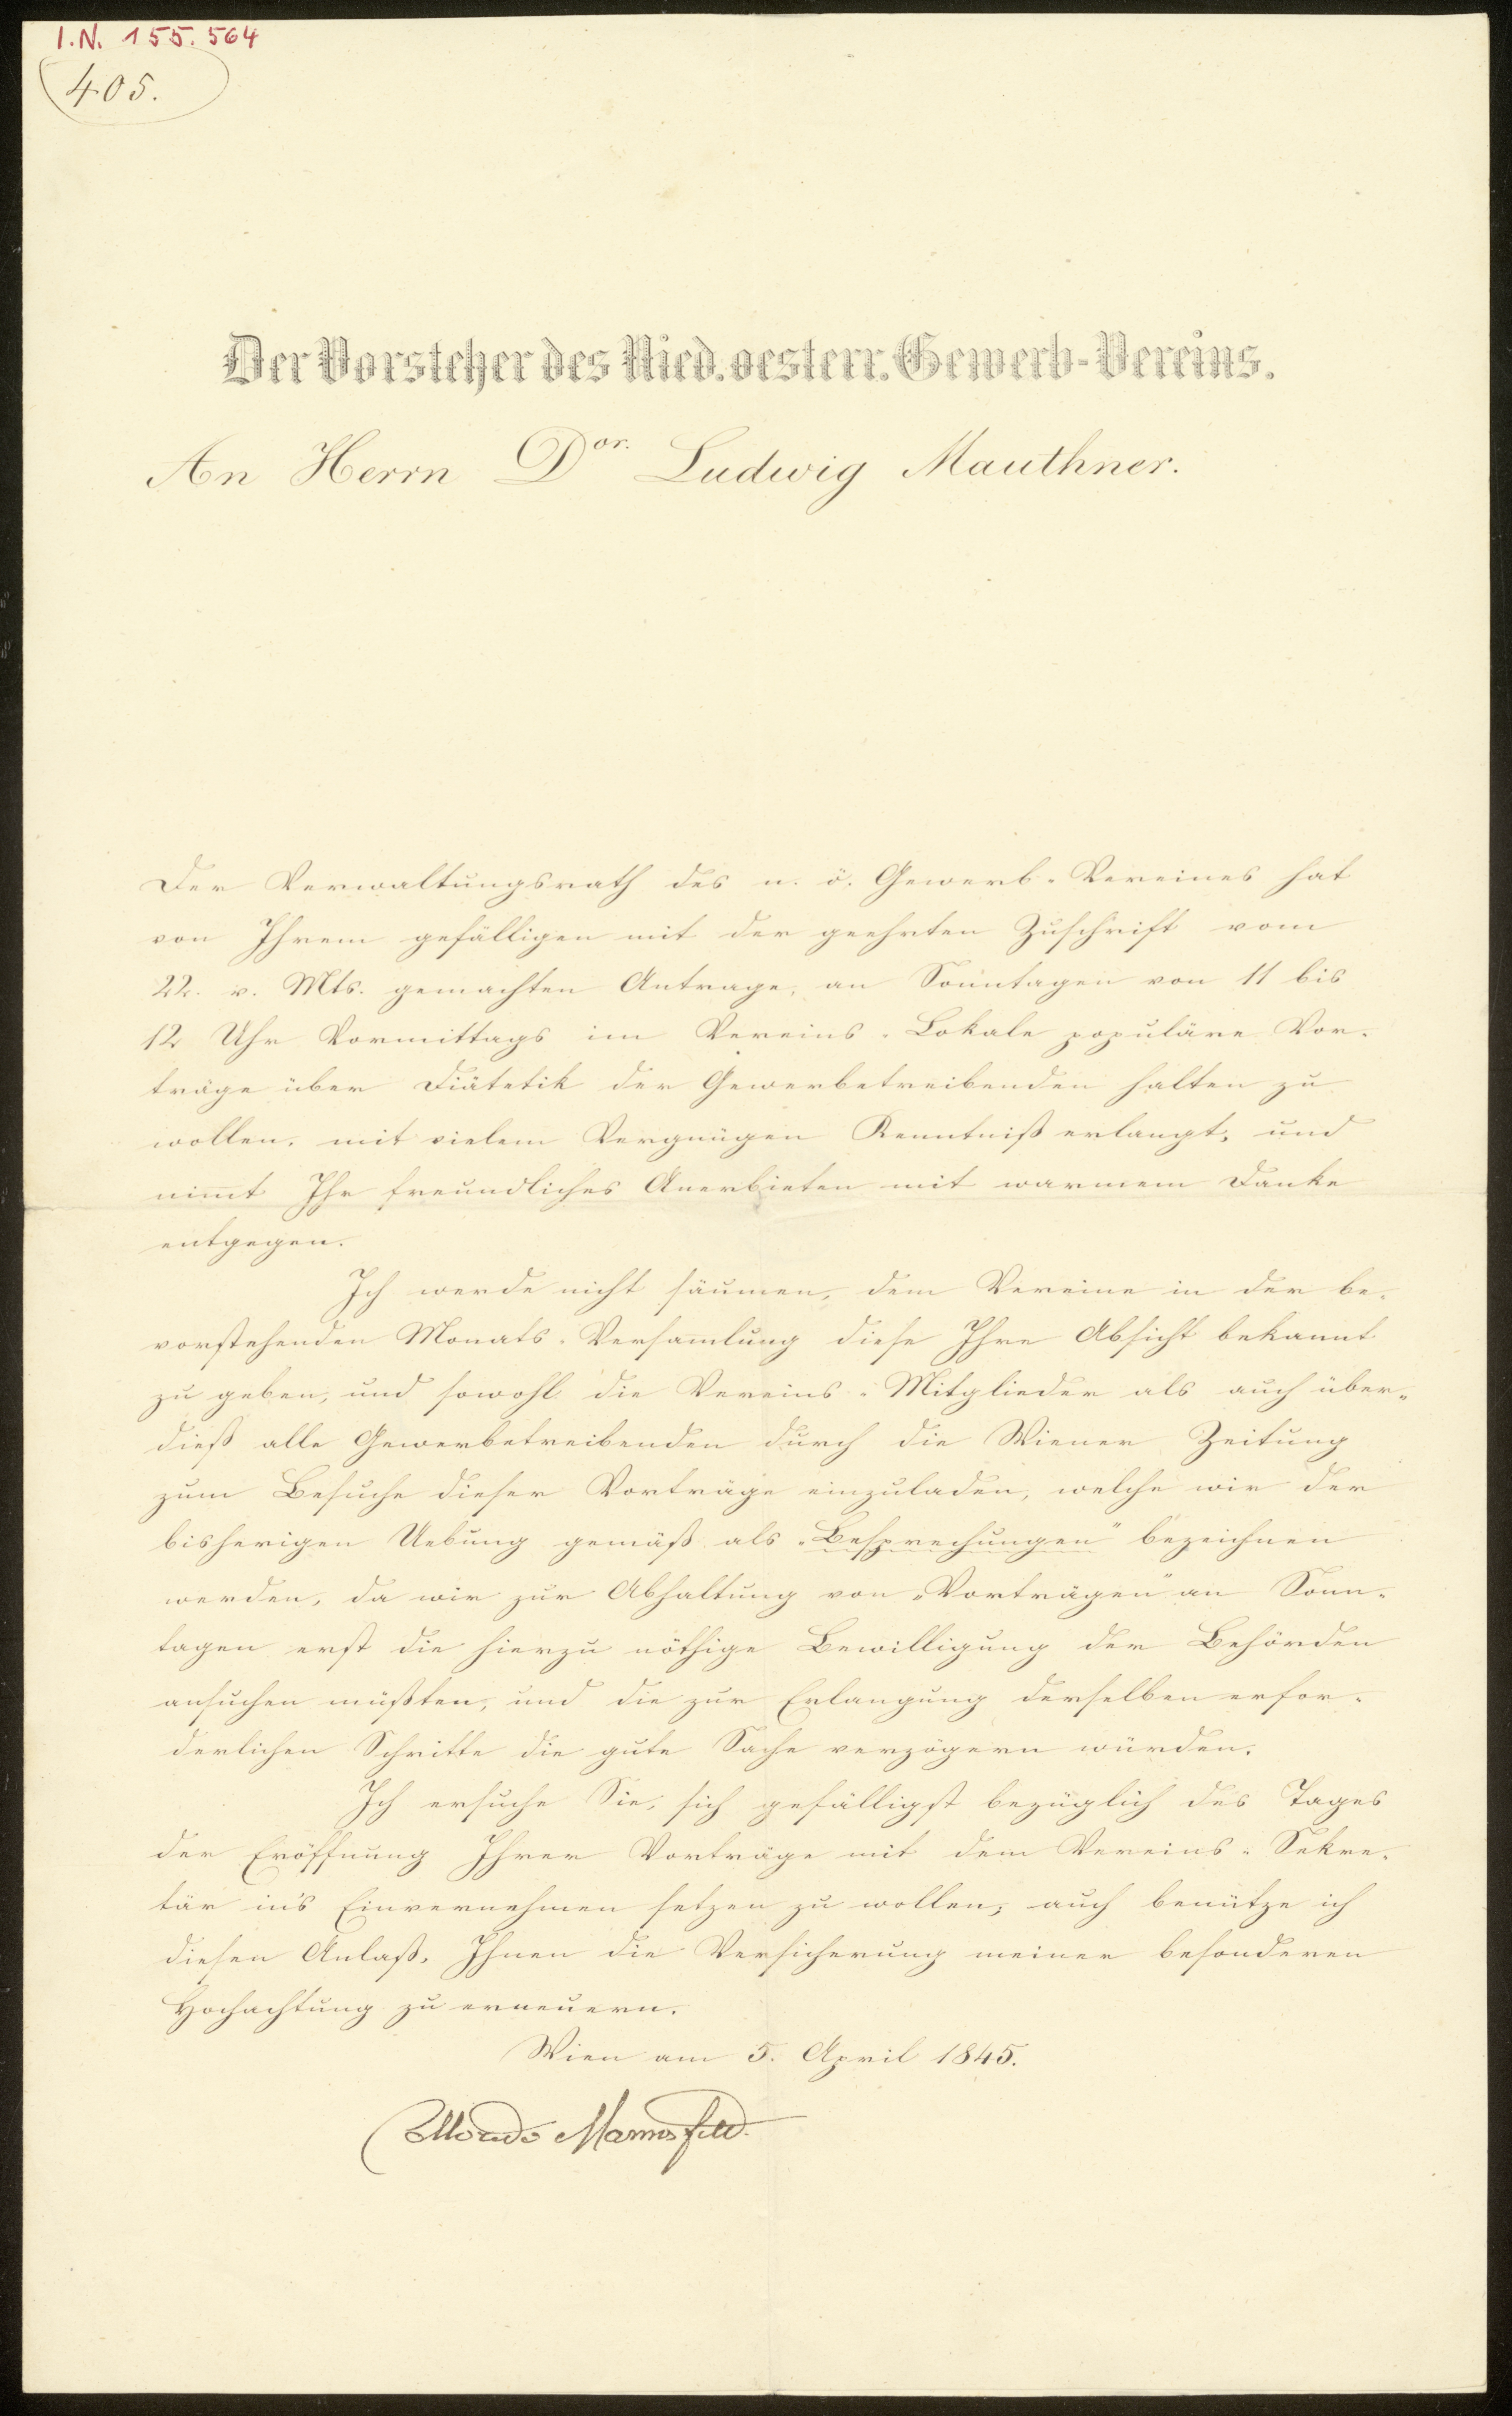 I.N. 155.564
405.
Der Vorsteher des Nied. oesterr. Gewerb-Vereins.
An Herrn Dor. Ludwig Mauthner.
Der Verwaltungsrath des n. ö. Gewerb-Vereines hat
von Ihrem gefälligen mit der geehrten Zuschrift vom
22. v. Mts. gemachten Antrage, an Sonntagen von 11 bis
12 Uhr Vormittags im Vereins-Lokale populäre Vor-
träge über Diätetik der Gewerbetreibenden halten zu
wollen, mit vielem Vergnügen Kenntniß erlangt, und
nimmt Ihr freundliches Anerbieten mit warmem Danke
entgegen.
Ich werde nicht säumen, dem Vereine in der be-
vorstehenden Monats-Versammlung diese Ihre Absicht bekannt
zu geben, und sowohl die Vereins-Mitglieder als auch über-
dieß alle Gewerbetreibenden durch die Wiener Zeitung
zum Besuche dieser Vorträge einzuladen, welche wir der
bisherigen Uebung gemäß als „Besprechungen" bezeichnen
werden, da wir zur Abhaltung von „Vorträgen" an Sonn-
tagen erst die hierzu nöthige Bewilligung der Behörden
ansuchen müßten, und die zur Erlangung derselben erfor-
derlichen Schritte die gute Sache verzögern würden.
Ich ersuche Sie, sich gefälligst bezüglich des Tages
der Eröffnung Ihrer Vorträge mit dem Vereins-Sekre-
tär in's Einvernehmen setzen zu wollen; auch benütze ich
diesen Anlaß, Ihnen die Versicherung meiner besonderen
Hochachtung zu erneuern.
Wien am 5. April 1845.
Mannsfeld